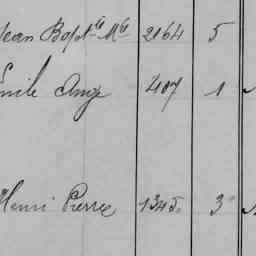 Jean Bap^te M^e 2164 5
Emile Ange 407 1
Henri Pierre 1345 3°